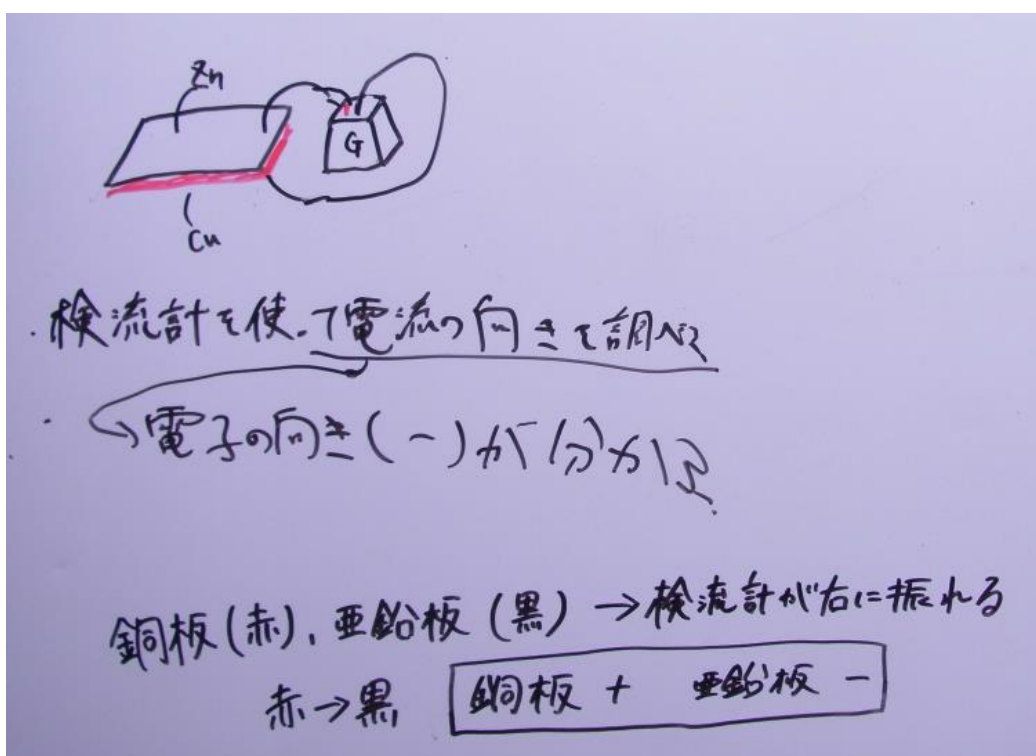 Zn
G
Cu
・検流計を使って電流の向きを調べる
・↳電子の向き(-)が分かる。
銅板(赤)、亜鉛板(黒)→検流計が右に振れる
赤→黒 銅板 + 亜鉛板 -